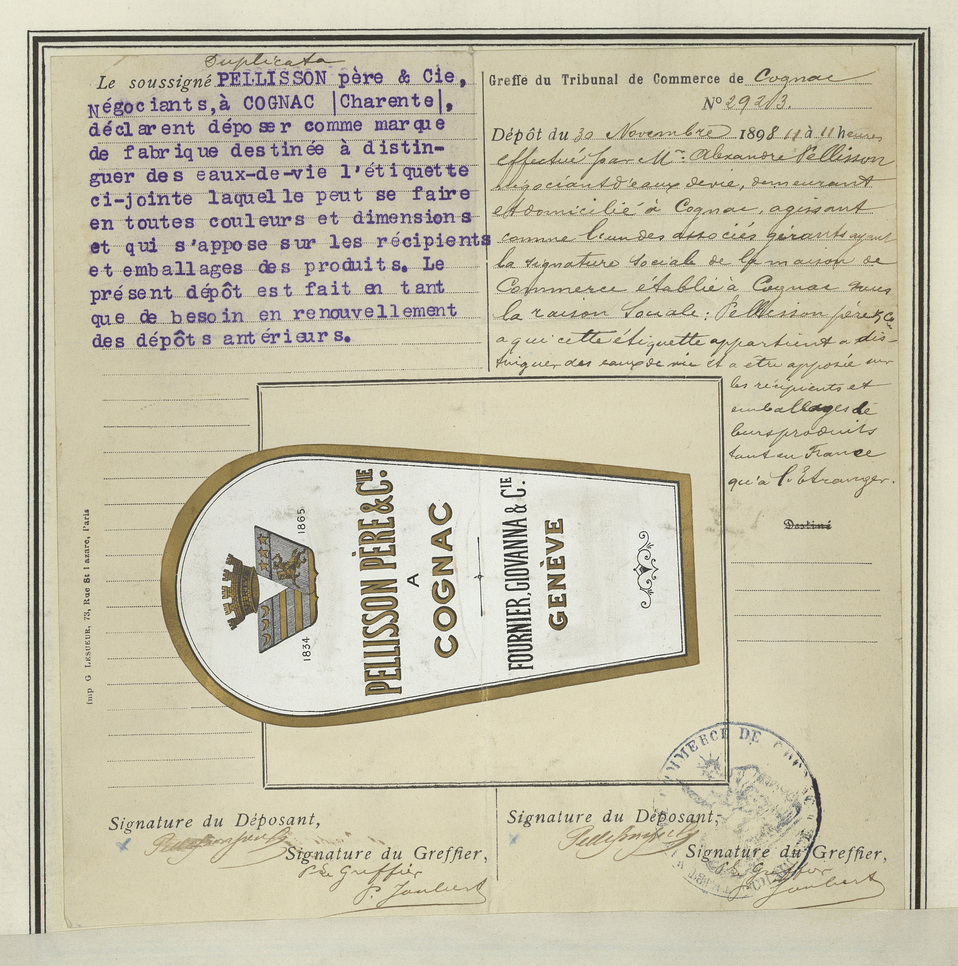 Duplicata
Le soussigné PELLISSON père & Cie,
Négociants, à COGNAC |Charente|,
déclarent déposer comme marque
de fabrique destinée à distin-
guer des eaux-de-vie l'étiquette
ci-jointe laquelle peut se faire
en toutes couleurs et dimensions
et qui s'appose sur les récipients
et emballages des produits. Le
présent dépôt est fait en tant
que de besoin en renouvellement
des dépôts antérieurs.
Greffe du Tribunal de Commerce de Cognac
N° 2923.
Dépôt du 30 Novembre 1898 à 11 heures
effectué par Mr. Alexandre Pellisson
négociant d'eaux de vie, demeurant
et domicilié à Cognac, agissant
comme l'un des associés gérants ayant
la signature sociale de la maison de
Commerce établie à Cognac sous
la raison Sociale: Pellisson père & Cie
a qui cette étiquette appartient a dis-
tinguer des eaux de vie et a etre apposée sur
les récipients et
emballages de
leurs produits
tant en France
qu'à l'Étranger.
Destiné
1834
1865
PELLISSON PÈRE & CIE.
A
COGNAC
FOURNIER, GIOVANNA & CIE.
GENÈVE
Imp G LESUEUR, 73, Rue St Lazare, Paris
COMMERCE DE COGNAC
Signature du Déposant,
Signature du Greffier,
Greffier
P. Joubert
Signature du Déposant,
Signature du Greffier,
Greffier
P. Joubert